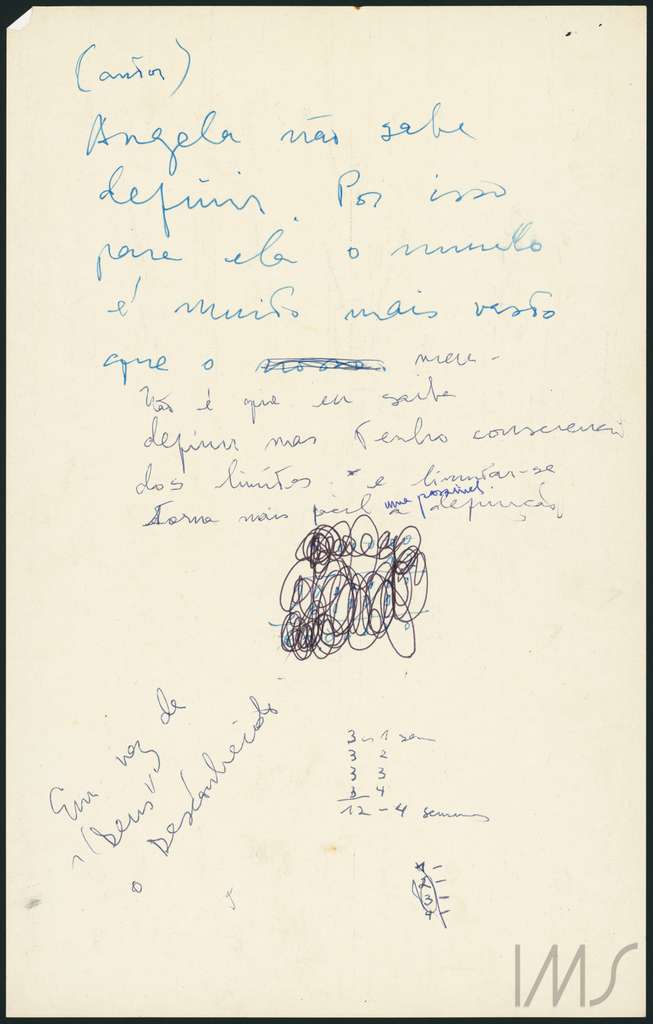 (autor)
Angela não sabe
definir. Por isso
para ela o mundo
é muito mais vasto
que o meu.
Não é que eu saiba
definir mas tenho consciencia
dos limites. e limitar-se
torna mais fácil uma possivel definição
Em vez de
(Deus)
o Desconhecido
3 1 sem
3 2
3 3
3 4
12 - 4 semanas
1 -
2 -
3 -
4 -
IMS